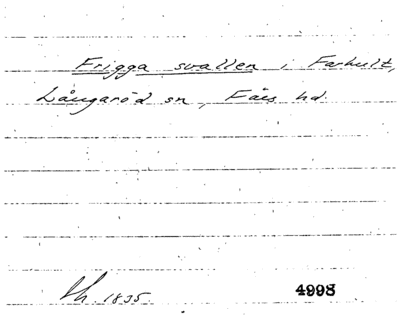 Frigga svallen i Farhult,
Långaröd sn, Färs hd.
1835. 4998